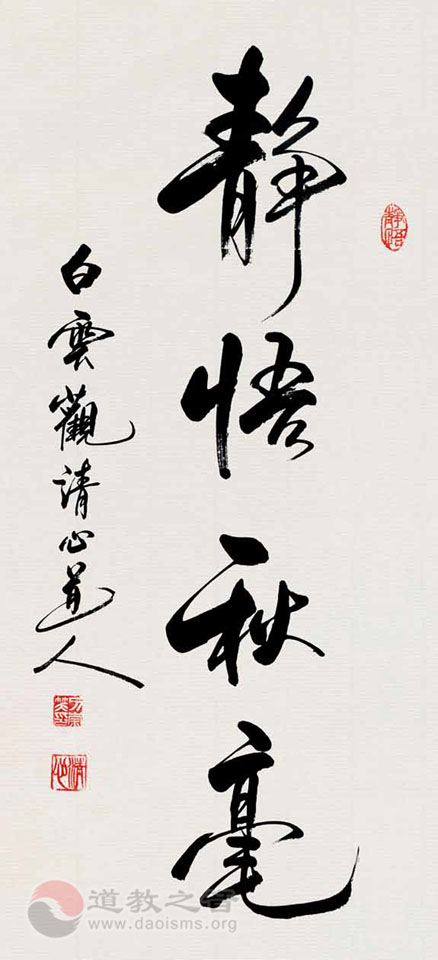 静悟秋毫
白雲觀清心道人
静悟
清心
道教之音
www.daoisms.org